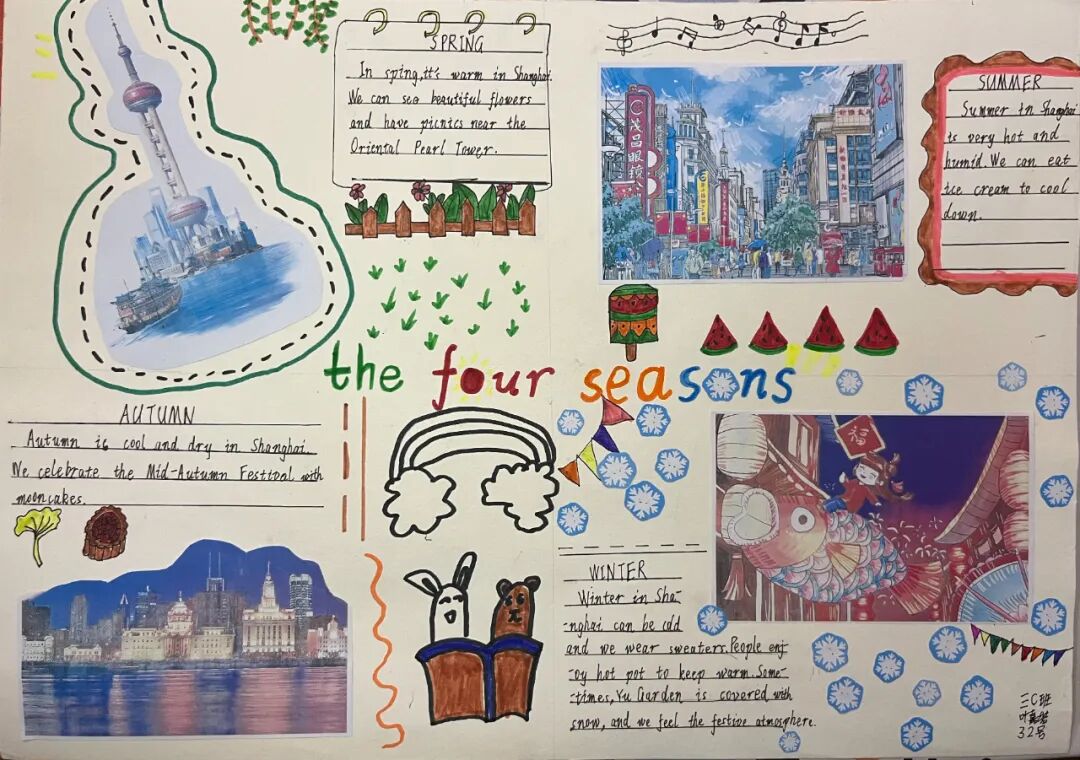 SPRING
In sping,it's warm in Shanghai.
We can see beautiful flowers
and have picnics near the
Oriental Pearl Tower.
茂昌眼镜
SUMMER
Summer in Shanghai
is very hot and
humid.We can eat
ice cream to cool
down.
the four seasons
AUTUMN
Autumn is cool and dry in Shanghai.
We celebrate the Mid-Autumn Festival with
mooncakes.
福
WINTER
Winter in Sha-
-nghai can be cold
and we wear sweaters.People enj-
-oy hot pot to keep warm.Some-
-times,Yu Garden is covered with
snow,and we feel the festive atmosphere.
三C班
32号